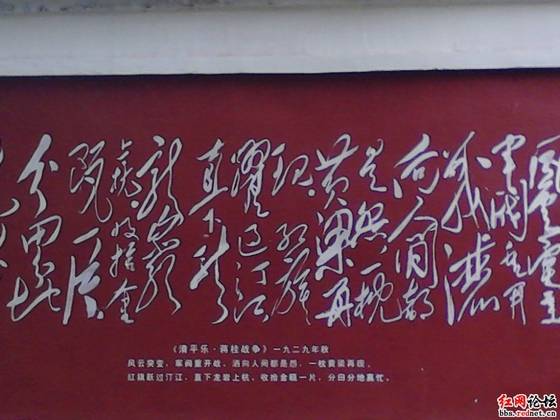 风云突变
军阀重开
战洒
向人间都
是怨一枕
黄粱再
现红旗
跃过汀江
直下
龙岩
收拾金
瓯一片
分田分地
《清平乐·蒋桂战争》一九二九年秋
风云突变,军阀重开战。洒向人间都是怨,一枕黄粱再现。
红旗跃过汀江,直下龙岩上杭。收拾金瓯一片,分田分地真忙。
红网论坛
bbs.rednet.cn